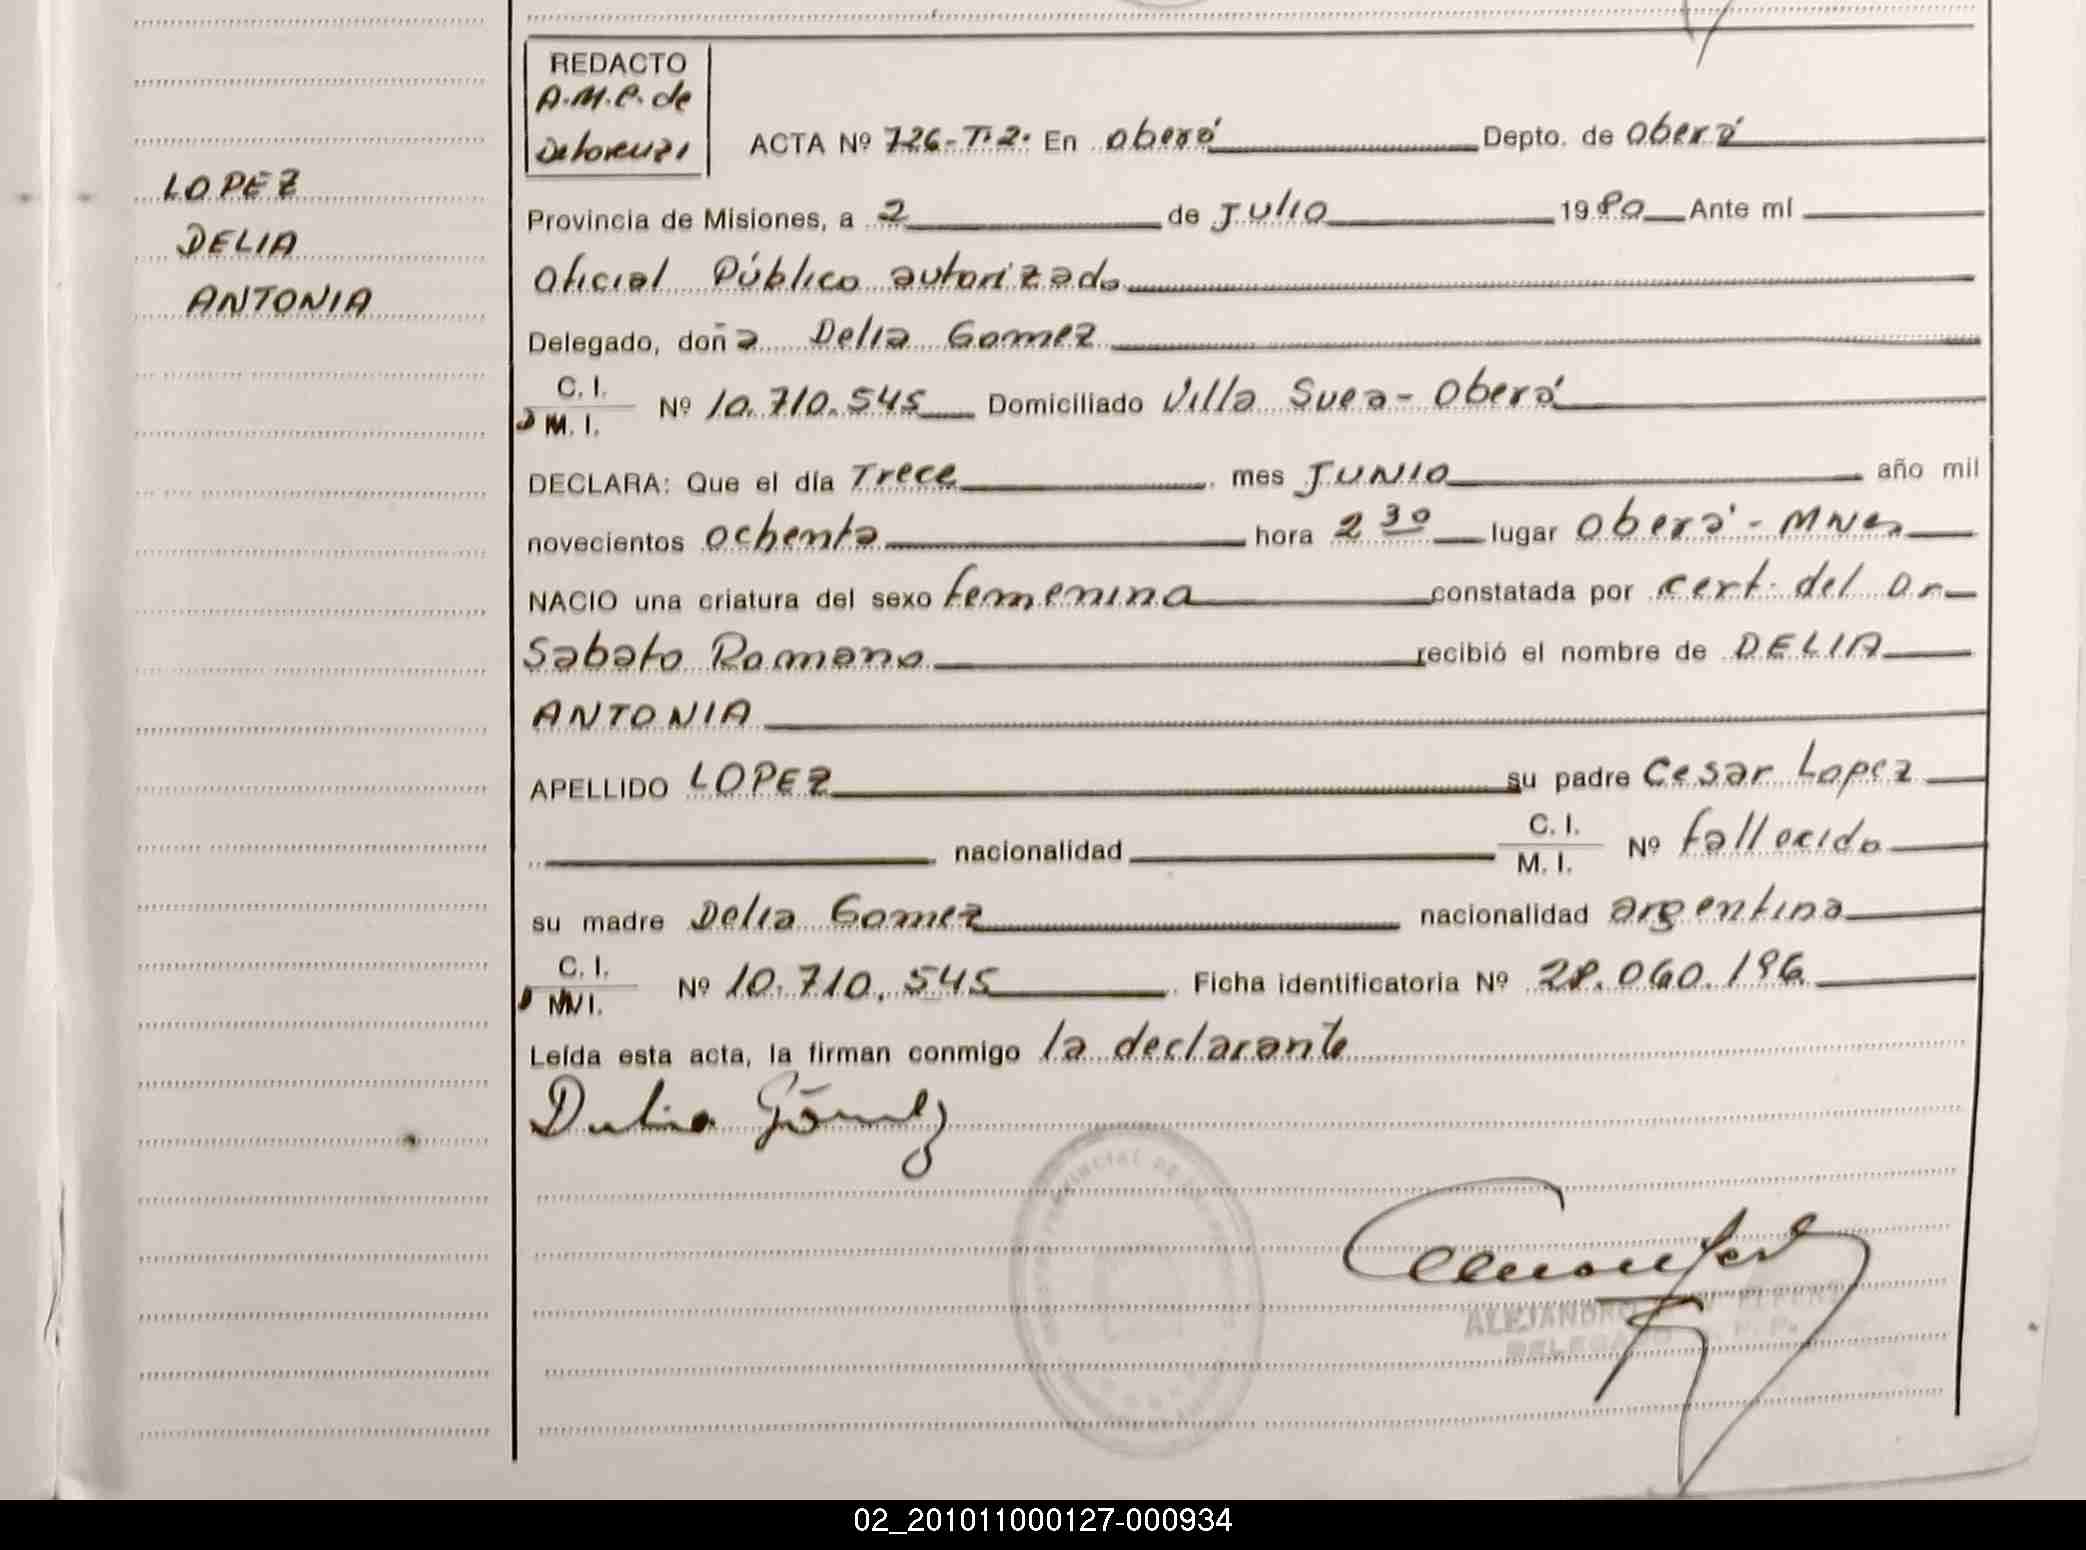 REDACTO
A.M.P. de
ACTA Nº 726-T.2. En Oberá Depto. de Oberá
LOPEZ
DELIA
ANTONIA
Provincia de Misiones, a 2 de Julio 1980 Ante mí
Oficial Público autorizado
Delegado, doña Delia Gomez
C. I.
M. I. Nº 10.710.545 Domiciliado Villa Svea - Oberá
DECLARA: Que el día Trece mes JUNIO año mil
novecientos ochenta hora 2 30 lugar Oberá - MNes
NACIO una criatura del sexo femenina constatada por cert. del Dr
Sabato Romano recibió el nombre de DELIA
ANTONIA
APELLIDO LOPEZ su padre Cesar Lopez
nacionalidad C. I.
M. I. Nº fallecido
su madre Delia Gomez nacionalidad argentina
C. I.
M. I. Nº 10.710.545 Ficha identificatoria Nº 28.060.196
Leída esta acta, la firman conmigo la declarante
ALEJANDRO
DELEGADO
02_201011000127-000934